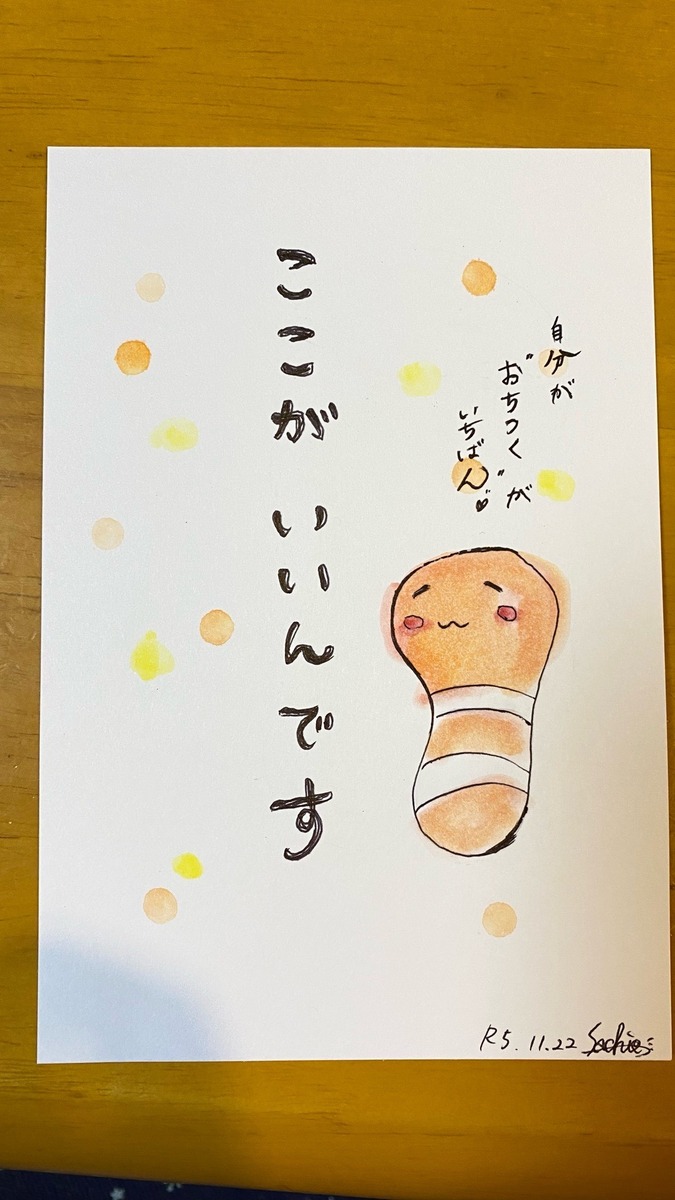 自分が
"おちつく"が
いちばん♡
ここが いいんです
R5.11.22 Sachie